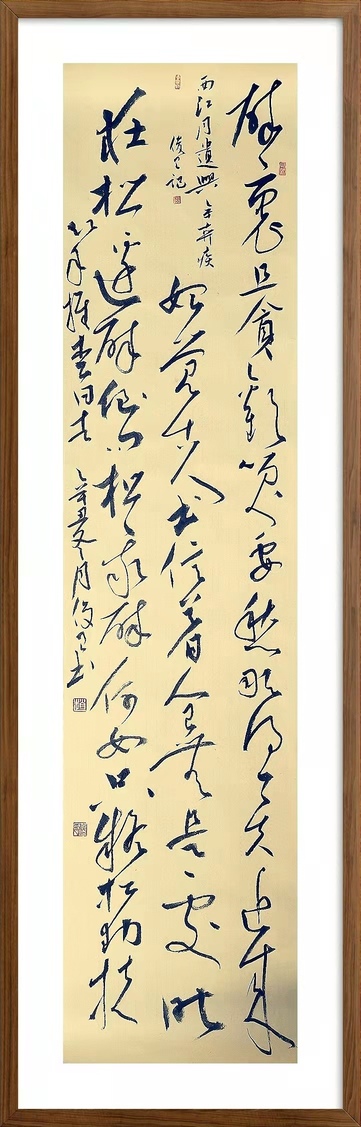 醉裏且貪歡笑要愁那得工夫近來
西江月遣興 辛弃疾
記
始覺古人書信着全無是處昨
夜松邊醉倒問松我醉何如只疑松動扶
以手推松曰去 辛丑夏月俊书